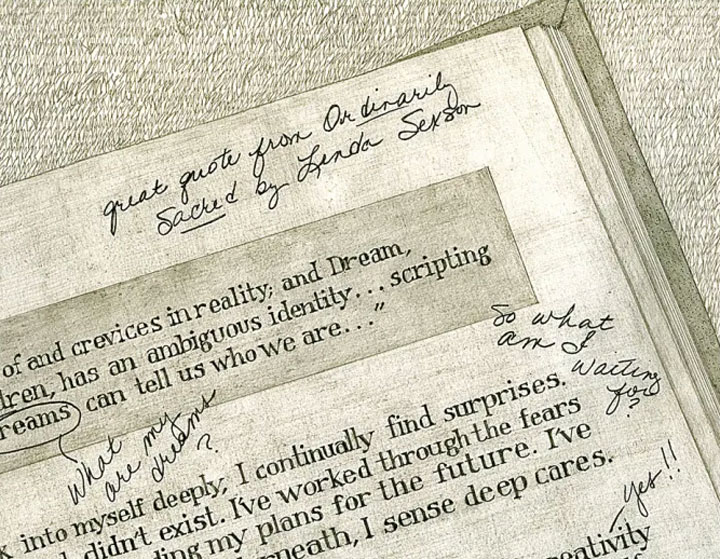 great quote from Ordinarily
Sacred by Lenda Sexson
of and crevices in reality; and Dream,
dren, has an ambiguous identity... scripting
reams can tell us who we are..."
So what
am I
waiting
for
?
What my
are my
dreams
?
k into myself deeply, I continually find surprises.
didn't exist. I've worked through the fears
ding my plans for the future. I've
erneath, I sense deep cares.
Yes!!
eativity